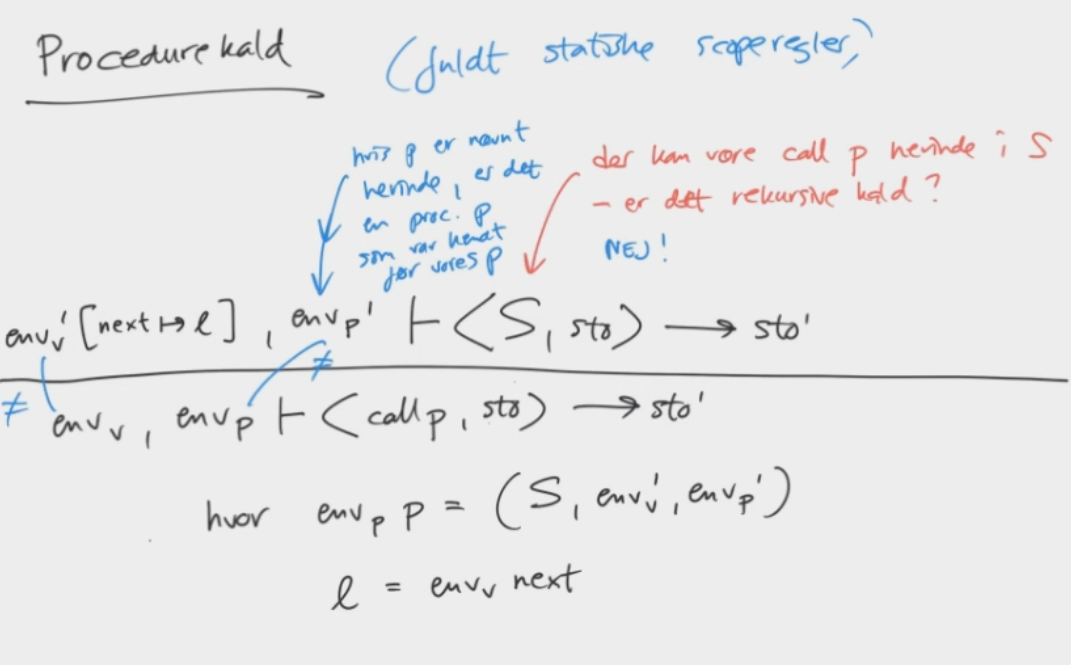 Procedurekald (fuldt statiske scoperegler)
hvis p er nævnt
herinde, er det
en proc. p
som var kendt
før vores p
der kan være call p herinde i S
- er det rekursive kald?
NEJ!
envᵥ'[next ↦ l], envₚ' ⊢ ⟨S, sto⟩ → sto'
≠
≠
envᵥ, envₚ ⊢ ⟨call p, sto⟩ → sto'
hvor envₚ p = (S, envᵥ', envₚ')
l = envᵥ next